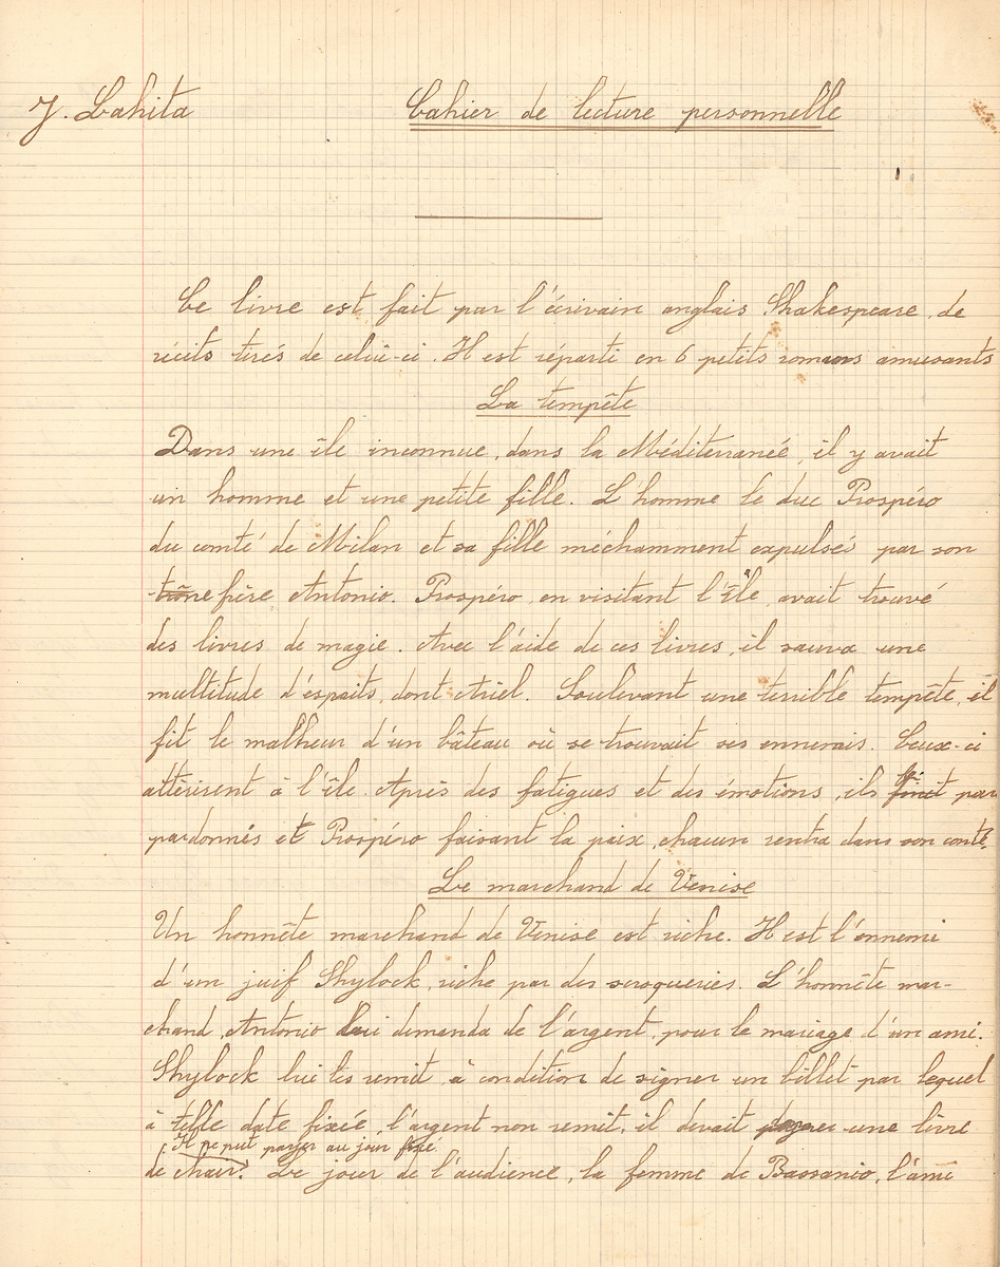 J. Lahita
Cahier de lecture personnelle
Ce livre est fait par l'écrivain anglais Shakespeare, de
récits tirés de celui-ci. Il est réparti en 6 petits romans amusants
La tempête
Dans une île inconnue, dans la Méditerranée, il y avait
un homme et une petite fille. L'homme le duc Prospéro
du comté de Milan et sa fille méchamment expulsés par son
trône frère Antonio. Prospéro, en visitant l'île, avait trouvé
des livres de magie. Avec l'aide de ces livres, il sauva une
multitude d'esprits, dont Ariel. Soulevant une terrible tempête, il
fit le malheur d'un bâteau où se trouvait ses ennemis. Ceux-ci
attérirent à l'île. Après des fatigues et des émotions, ils finit par
pardonnés et Prospéro faisant la paix, chacun rentra dans son comté.
Le marchand de Venise
Un honnête marchand de Venise est riche. Il est l'ennemi
d'un juif Shylock, riche par des scroqueries. L'honnête mar-
chand, Antonio lui demanda de l'argent, pour le mariage d'un ami.
Shylock lui les remit à condition de signer un billet par lequel
à telle date fixée, l'argent non remit, il devait payer une livre
Il ne put payer au jour fixé.
de chair. Le jour de l'audience, la femme de Bassanio, l'ami